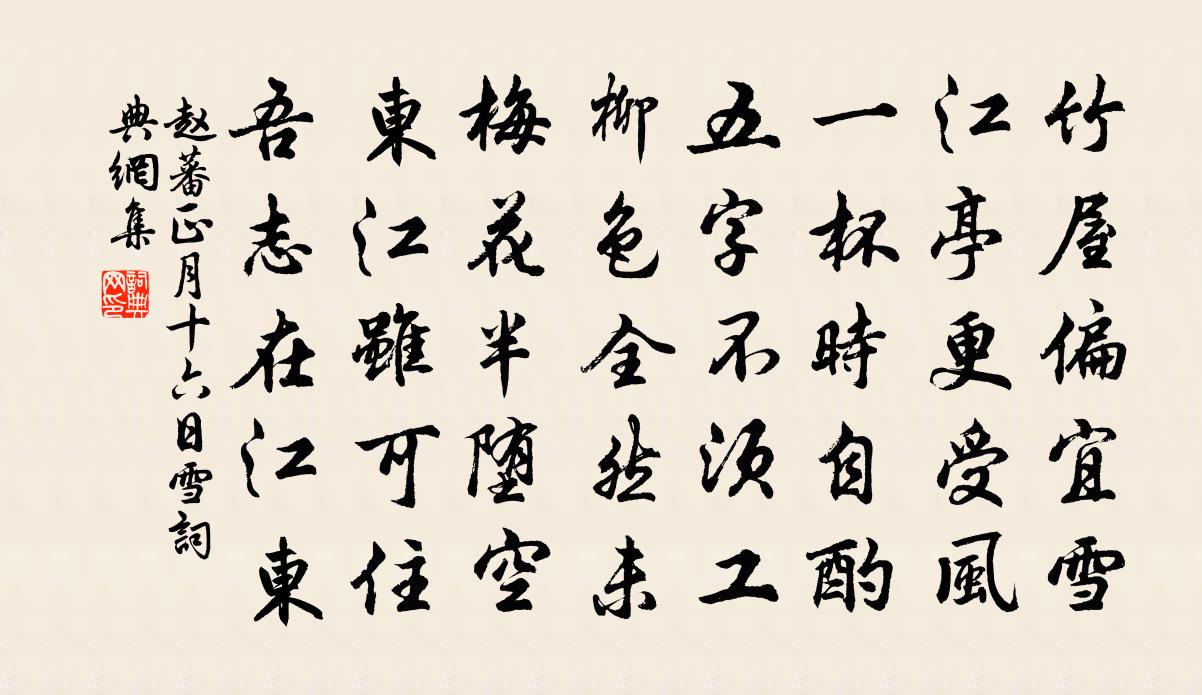 竹屋偏宜雪
江亭更受風
一杯時自酌
五字不須工
柳色全然未
梅花半堕空
東江雖可住
吾志在江東
赵蕃正月十六日雪詞
典網集
詞典
网印